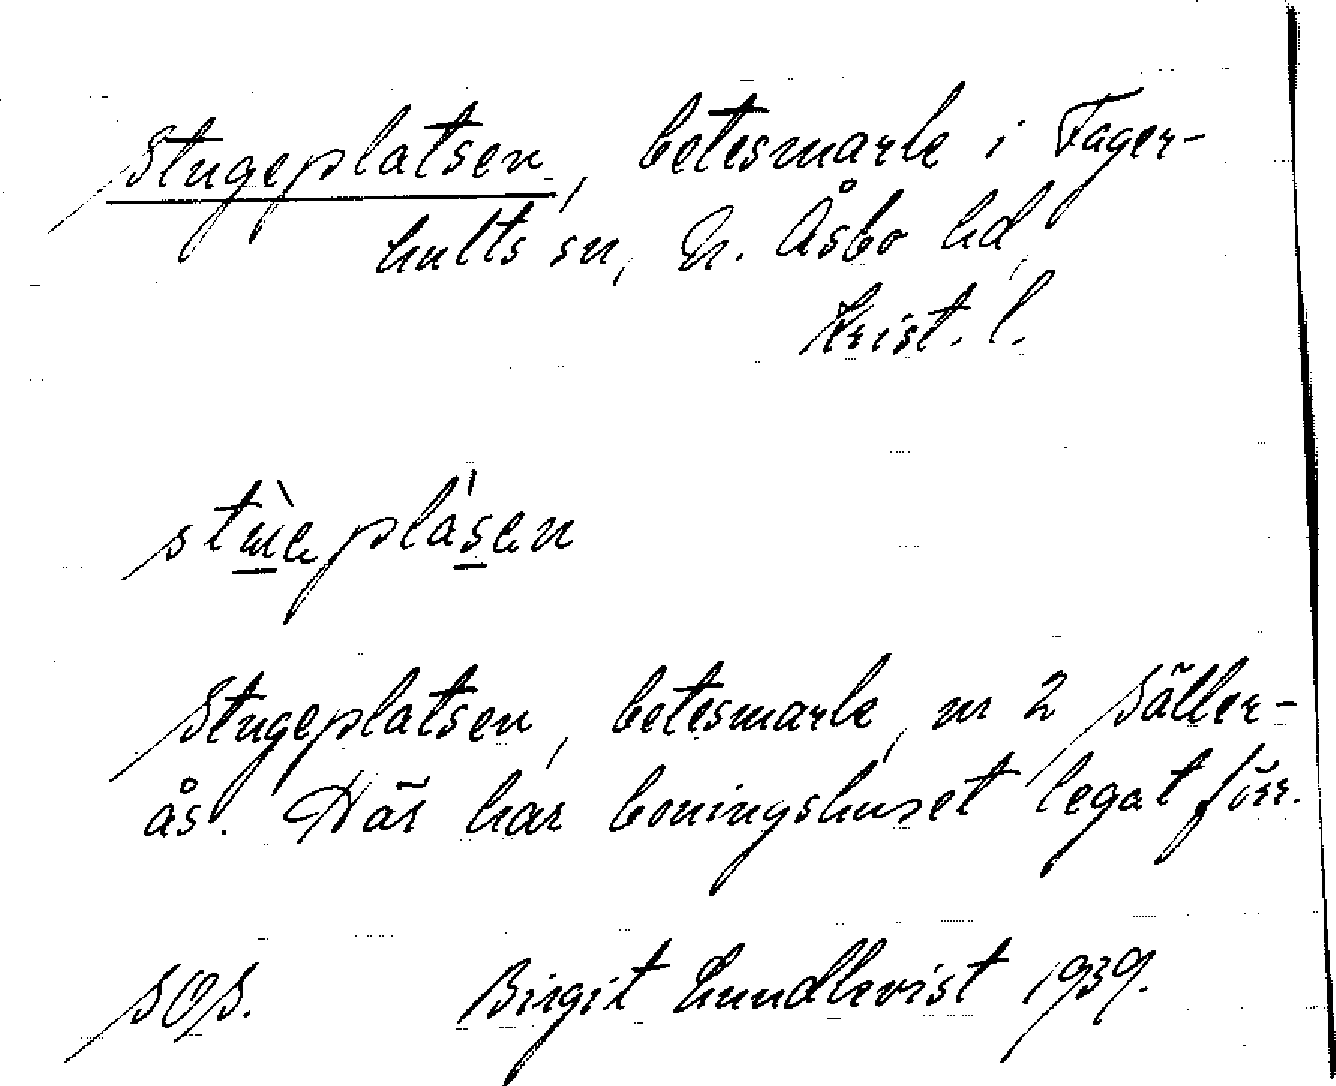 Stugeplatsen, betesmark i Fager-
hults sn, N. Åsbo hd,
Krist. l.
Stugeplatsen, betesmark, nr 2 Säller-
ås. Här har boningshuset legat förr.
SOS. Birgit Lundkvist 1939.